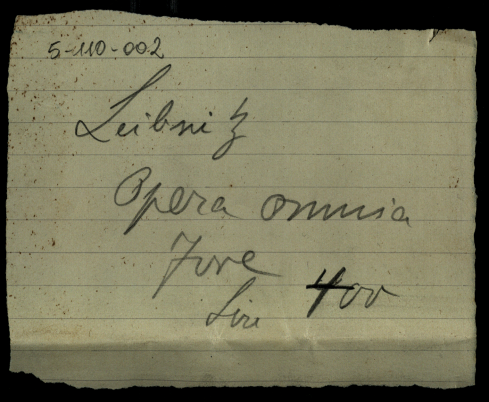 5-110-002
Leibnitz
Opera omnia
Fore
Lire 400